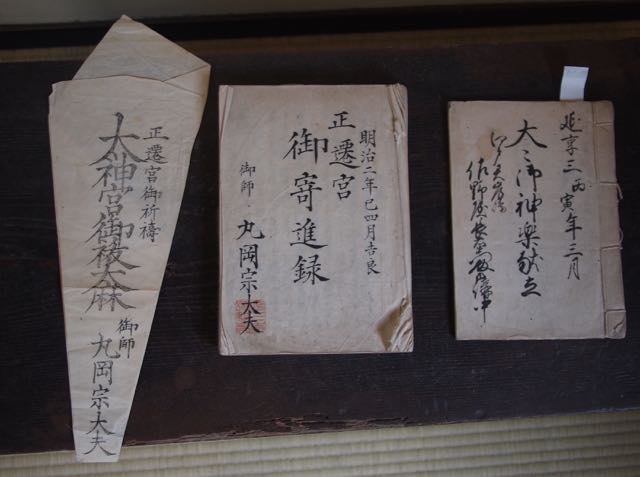 正遷宮御祈禱
太神宮御祓大麻
御師 丸岡宗大夫
明治二年巳四月吉良
正遷宮
御寄進録
御師 丸岡宗大夫
延享三丙寅年三月
太々御神楽献立
佐野屋